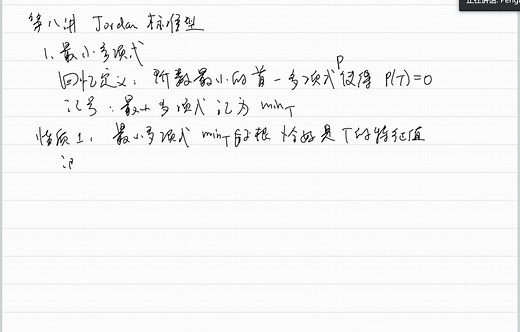 正在讲话: Peng
第八讲 Jordan 标准型
1. 最小多项式
回忆定义: 阶数最小的首一多项式 p 使得 p(T)=0
记号: 最小多项式 记为 min_T
性质1. 最小多项式 min_T 的根 恰好是 T 的特征值